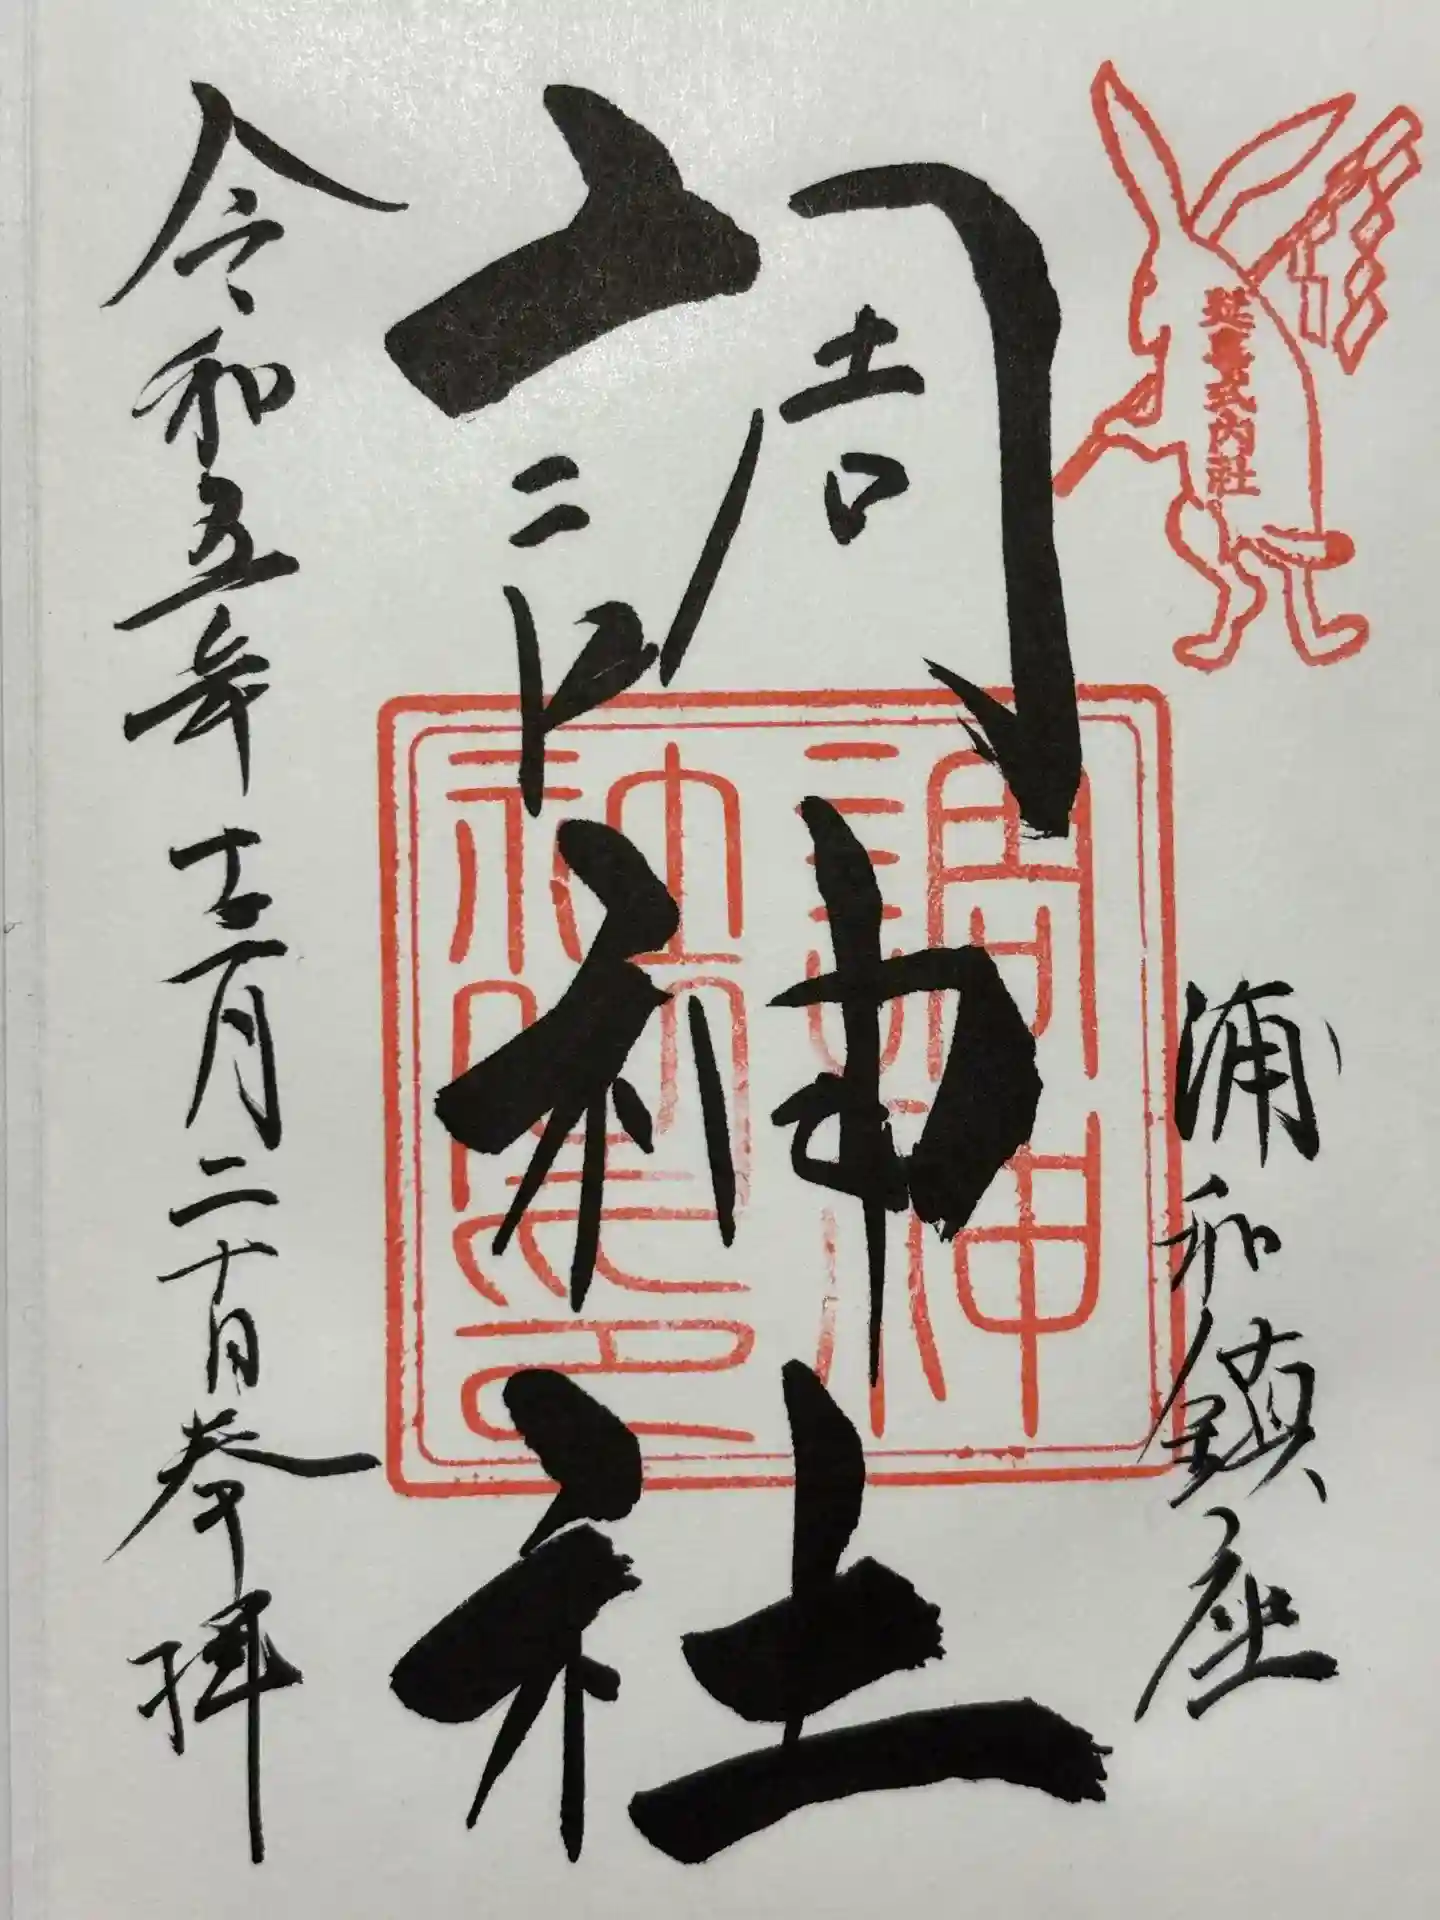 延喜式内社
浦和鎮座
調神社
調神
社之印
令和五年十二月二十日参拝